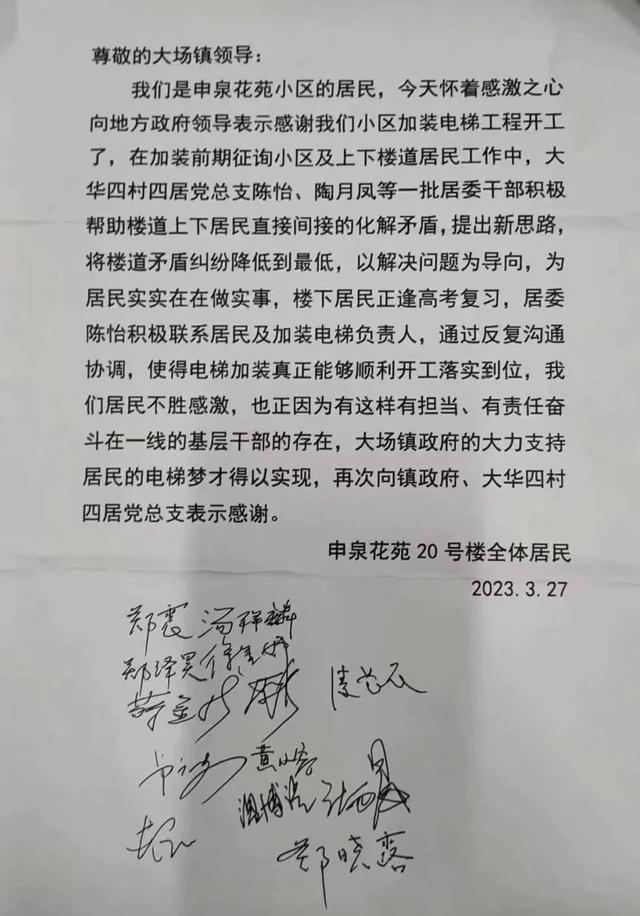 尊敬的大场镇领导：
我们是申泉花苑小区的居民，今天怀着感激之心
向地方政府领导表示感谢我们小区加装电梯工程开工
了，在加装前期征询小区及上下楼道居民工作中，大
华四村四居党总支陈怡、陶月凤等一批居委干部积极
帮助楼道上下居民直接间接的化解矛盾，提出新思路，
将楼道矛盾纠纷降低到最低，以解决问题为导向，为
居民实实在在做实事，楼下居民正逢高考复习，居委
陈怡积极联系居民及加装电梯负责人，通过反复沟通
协调，使得电梯加装真正能够顺利开工落实到位，我
们居民不胜感激，也正因为有这样有担当、有责任奋
斗在一线的基层干部的存在，大场镇政府的大力支持
居民的电梯梦才得以实现，再次向镇政府、大华四村
四居党总支表示感谢。
申泉花苑 20 号楼全体居民
2023.3.27
郑震
郑泽昊
郑晓露